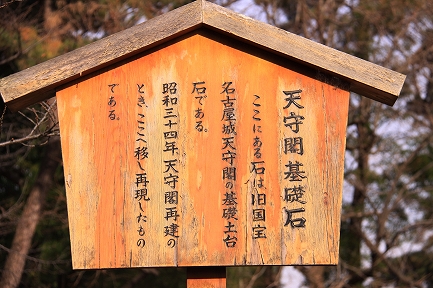 天守閣基礎石
ここにある石は旧国宝
名古屋城天守閣の基礎土台
石である。
昭和三十四年、天守閣再建の
とき、ここへ移し再現したもの
である。